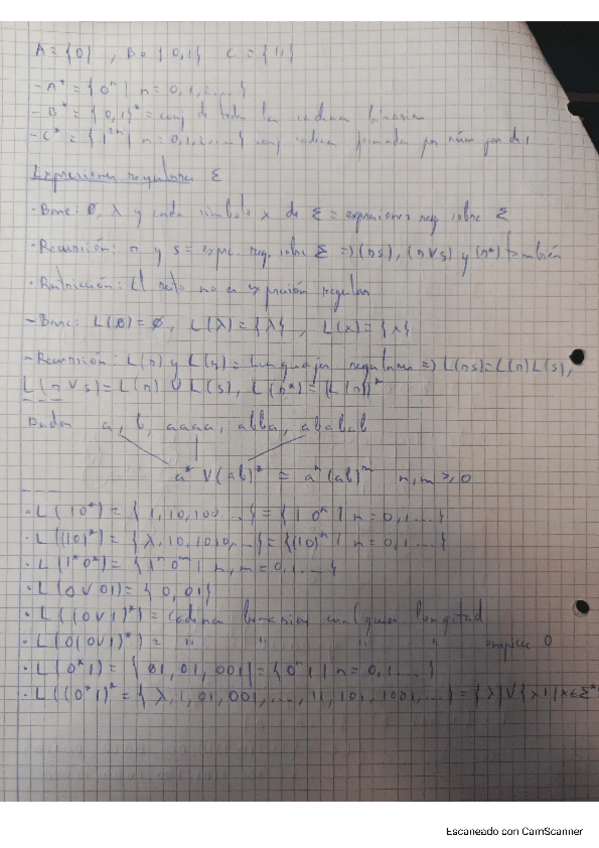 A = {0} , B = {0,1} C = {11}
- A* = {0ⁿ | n = 0,1,2...}
- B* = {0,1}* = conj de todas las cadenas binarias
- C* = {1²ⁿ | n = 0,1,2,...} conj cadenas formadas por núm par de 1
Expresiones regulares Σ
· Base: ∅, λ y cada símbolo x de Σ = expresiones reg sobre Σ
· Recursión: r y s = expr. reg. sobre Σ => (rs), (r∨s) y (r*) también
· Restricción: El resto no es expresión regular
- Base: L(∅) = ∅, L(λ) = {λ}, L(x) = {x}
- Recursión: L(r) y L(s) = lenguajes regulares => L(rs) = L(r)L(s),
L(r∨s) = L(r) ∪ L(s), L(r*) = (L(r))*
Dados a, b, aaaa, abba, ababab
a* ∨ (ab)* = aⁿ(ab)ᵐ n,m ≥ 0
· L(10*) = {1,10,100...} = {1 0ⁿ | n = 0,1...}
· L((10)*) = {λ,10,1010,...} = {(10)ⁿ | n = 0,1...}
· L(1*0*) = {1ⁿ0ᵐ | n,m = 0,1...}
· L(0∨01) = {0,01}
· L((0∨1)*) = cadenas binarias cualquier longitud
· L(0(0∨1)*) = " " " " empiece 0
· L(0*1) = {01,01,001} = {0ⁿ1 | n = 0,1...}
· L((0*1)* = {λ,1,01,001,...,11,101,1001,...} = {λ} ∪ {x1 | x∈Σ*
Escaneado con CamScanner